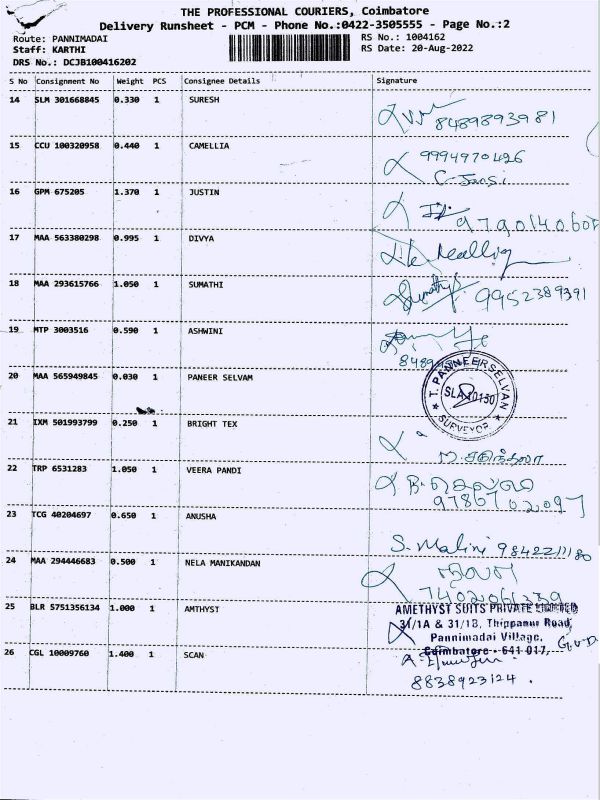 THE PROFESSIONAL COURIERS, Coimbatore
Delivery Runsheet - PCM - Phone No.:0422-3505555 - Page No.:2
Route: PANNIMADAI
RS No.: 1004162
Staff: KARTHI
RS Date: 20-Aug-2022
DRS No.: DCJB100416202
S No Consignment No Weight PCS Consignee Details Signature
14 SLM 301668845 0.330 1 SURESH
8489893981
15 CCU 100320958 0.440 1 CAMELLIA
9994970426
C. Jansi
16 GPM 675205 1.370 1 JUSTIN
9790140605
17 MAA 563380298 0.995 1 DIVYA
18 MAA 293615766 1.050 1 SUMATHI
9952389391
19 MTP 3003516 0.590 1 ASHWINI
20 MAA 565949845 0.030 1 PANEER SELVAM
T. PANNEERSELVAN
SURVEYOR
21 IXM 501993799 0.250 1 BRIGHT TEX
22 TRP 6531283 1.050 1 VEERA PANDI
9786702097
23 TCG 40204697 0.650 1 ANUSHA
S. Malini
24 MAA 294446683 0.500 1 NELA MANIKANDAN
25 BLR S751356134 1.000 1 AMTHYST
AMETHYST SUITS PRIVATE
31/1A & 31/1B, Thippanur Road,
Pannimadai Village,
Coimbatore - 641 017,
26 CGL 10009760 1.400 1 SCAN
8838923124.